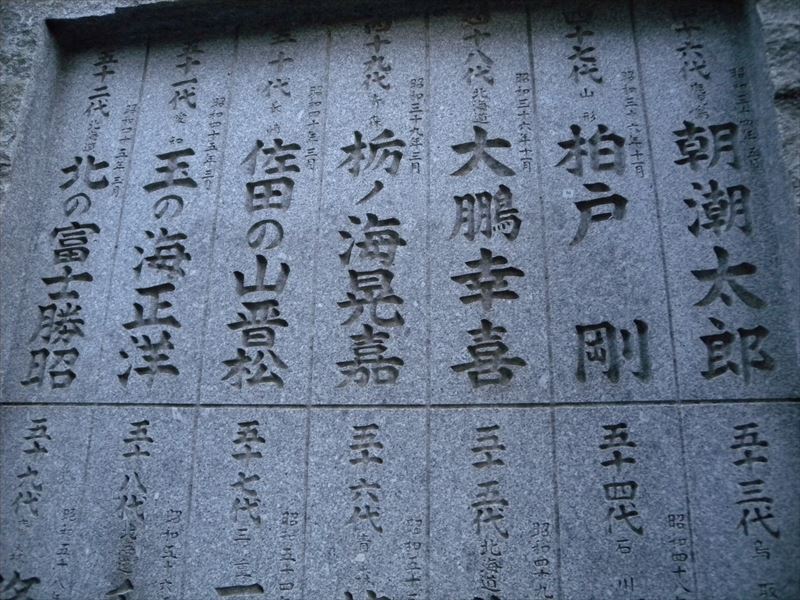 十六代
朝潮太郎
四十七代 山形
昭和三十六年十一月
柏戸 剛
四十八代 北海道
昭和三十六年十一月
大鵬幸喜
四十九代 青森
昭和三十九年三月
栃ノ海晃嘉
五十代 長崎
昭和四十年三月
佐田の山晋松
五十一代 愛知
昭和四十五年三月
玉の海正洋
五十二代 北海道
昭和四十五年三月
北の富士勝昭
五十三代 鳥取
五十四代 石川
昭和四十八
五十五代 北海道
昭和四十九
五十六代 青森
昭和五十三
五十七代 三重
昭和五十四
五十八代 北海道
昭和五十六
五十九代
昭和五十八